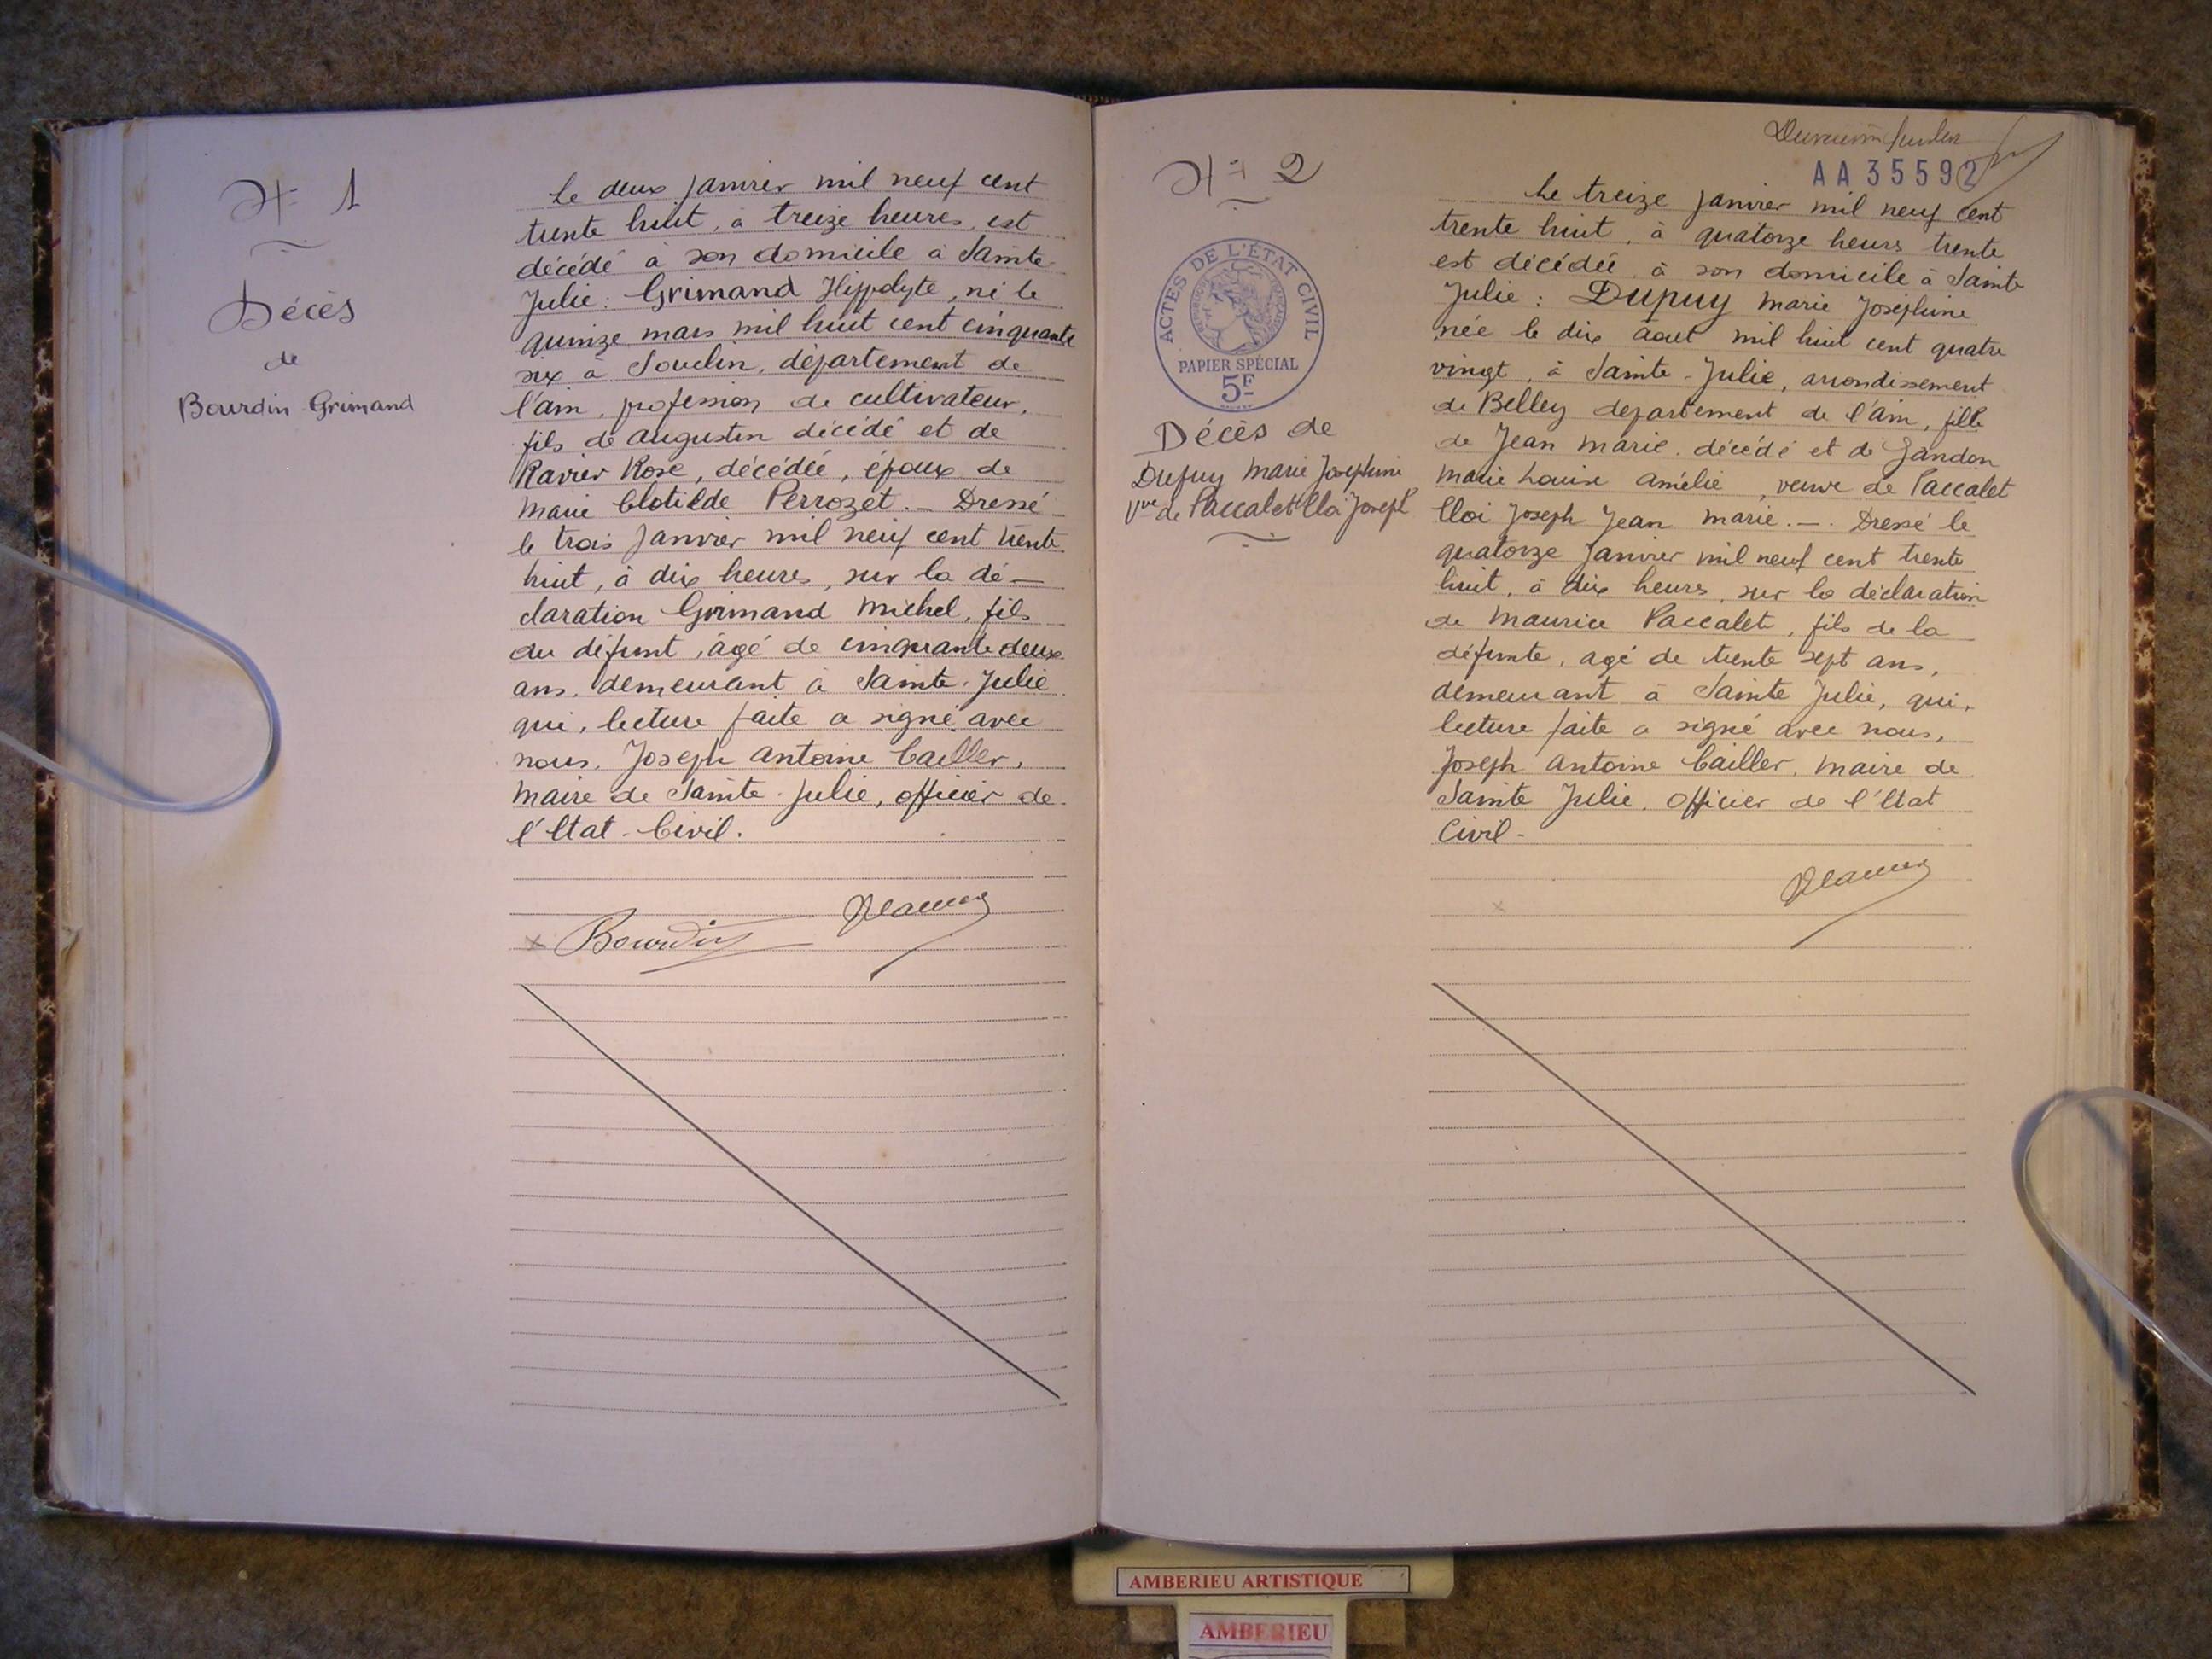 N° 1
Décès
de
Bourdin Grimand
Le deux janvier mil neuf cent
trente huit, à treize heures, est
décédé à son domicile à Sainte
Julie : Grimand Hippolyte, né le
quinze mars mil huit cent cinquante
six à Souclin, département de
l'ain, profession de cultivateur,
fils de augustin décédé et de
Ravier Rose, décédée, époux de
Marie Clotilde Perrozet. _ Dressé
le trois janvier mil neuf cent trente
huit, à dix heures, sur la dé-
claration Grimand Michel, fils
du défunt, âgé de cinquante deux
ans, demeurant à Sainte-Julie
qui, lecture faite a signé avec
nous, Joseph Antoine Cailler,
Maire de Sainte-Julie, officier de
l'Etat-Civil.
Bourdin
N° 2
ACTES DE L'ÉTAT CIVIL
PAPIER SPÉCIAL
5F
Décès de
Dupuy Marie Josephine
Vve de Paccalet Eloi Joseph
AA 35592
Le treize janvier mil neuf cent
trente huit, à quatorze heures trente
est décédée à son domicile à Sainte
Julie : Dupuy Marie Joséphine
née le dix août mil huit cent quatre
vingt, à Sainte-Julie, arrondissement
de Belley departement de l'ain, fille
de Jean Marie, décédé et de Gandon
Marie Louise Amélie, veuve de Paccalet
Eloi Joseph Jean Marie. _ . Dressé le
quatorze janvier mil neuf cent trente
huit, à dix heures, sur la déclaration
de Maurice Paccalet, fils de la
défunte, agé de trente sept ans,
demeurant à Sainte Julie, qui,
lecture faite a signé avec nous,
Joseph Antoine Cailler, Maire de
Sainte Julie, Officier de l'Etat
Civil-
AMBERIEU ARTISTIQUE
AMBERIEU